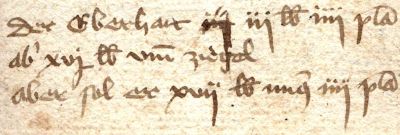 der Eberhart iij lb iiij pla
ab xvj lb vm̄ ziegel
aber sol er xvij lb mīq iiij pla